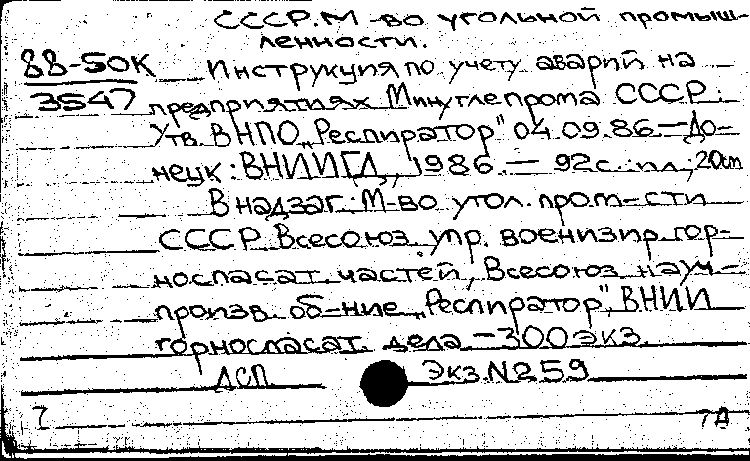 СССР. М-во угольной промыш-
ленности.
88-50К
3547
Инструкция по учету аварий на
предприятиях Минуглепрома СССР:
Утв. ВНПО „Респиратор" 04.09.86.—До-
нецк: ВНИИГД, 1986.— 92с.: ил; 20см
В надзаг: М-во угол. пром-сти
СССР. Всесоюз. упр. военизир. гор-
носпасат. частей, Всесоюз. науч-
произв. об-ние „Респиратор", ВНИИ
горноспасат. дела —300экз.
ДСП Экз.N259
7 7А